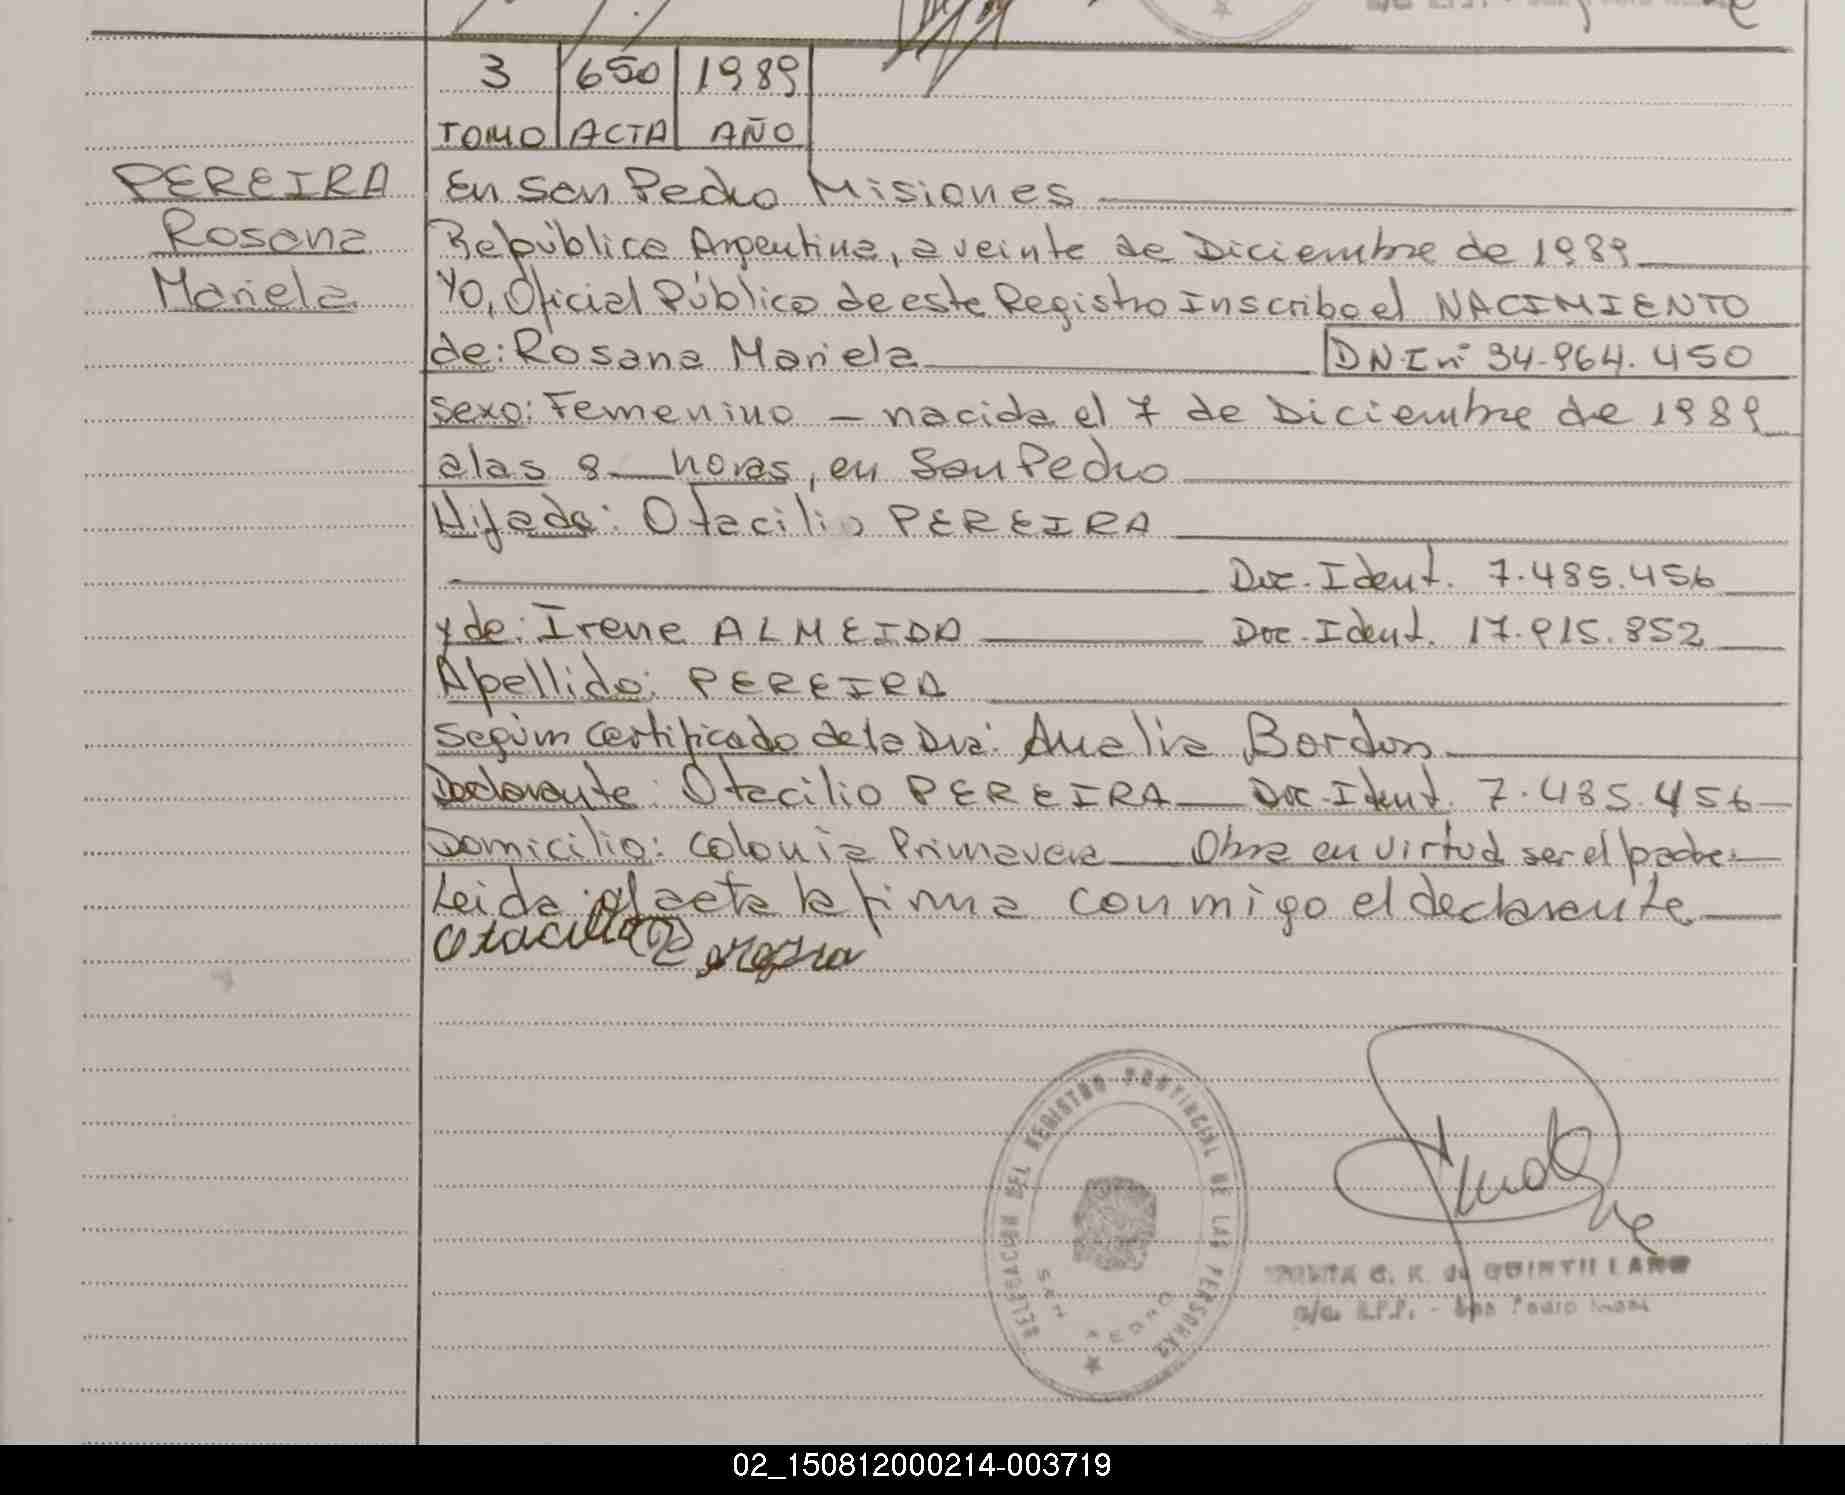 3 650 1989
TOMO ACTA AÑO
PEREIRA
Rosana
Mariela
En San Pedro Misiones
República Argentina, a veinte de Diciembre de 1989
Yo, Oficial Público de este Registro Inscribo el NACIMIENTO
de: Rosana Mariela DNI nº 34.964.450
sexo: Femenino - nacida el 7 de Diciembre de 1989
a las 8 horas, en San Pedro
Hija de: Otacilio PEREIRA
Doc. Ident. 7.485.456
y de: Irene ALMEIDA Doc. Ident. 17.915.852
Apellido: PEREIRA
según certificado de la Dra: Analia Bordon
Declarante: Otacilio PEREIRA Doc. Ident. 7.485.456
Domicilio: Colonia Primavera Obra en virtud ser el padre.
Leida el acta la firma conmigo el declarante
DELEGACION DEL REGISTRO PROVINCIAL DE LAS PERSONAS
SAN PEDRO
C. K. de QUINTILLANO
San Pedro
02_150812000214-003719